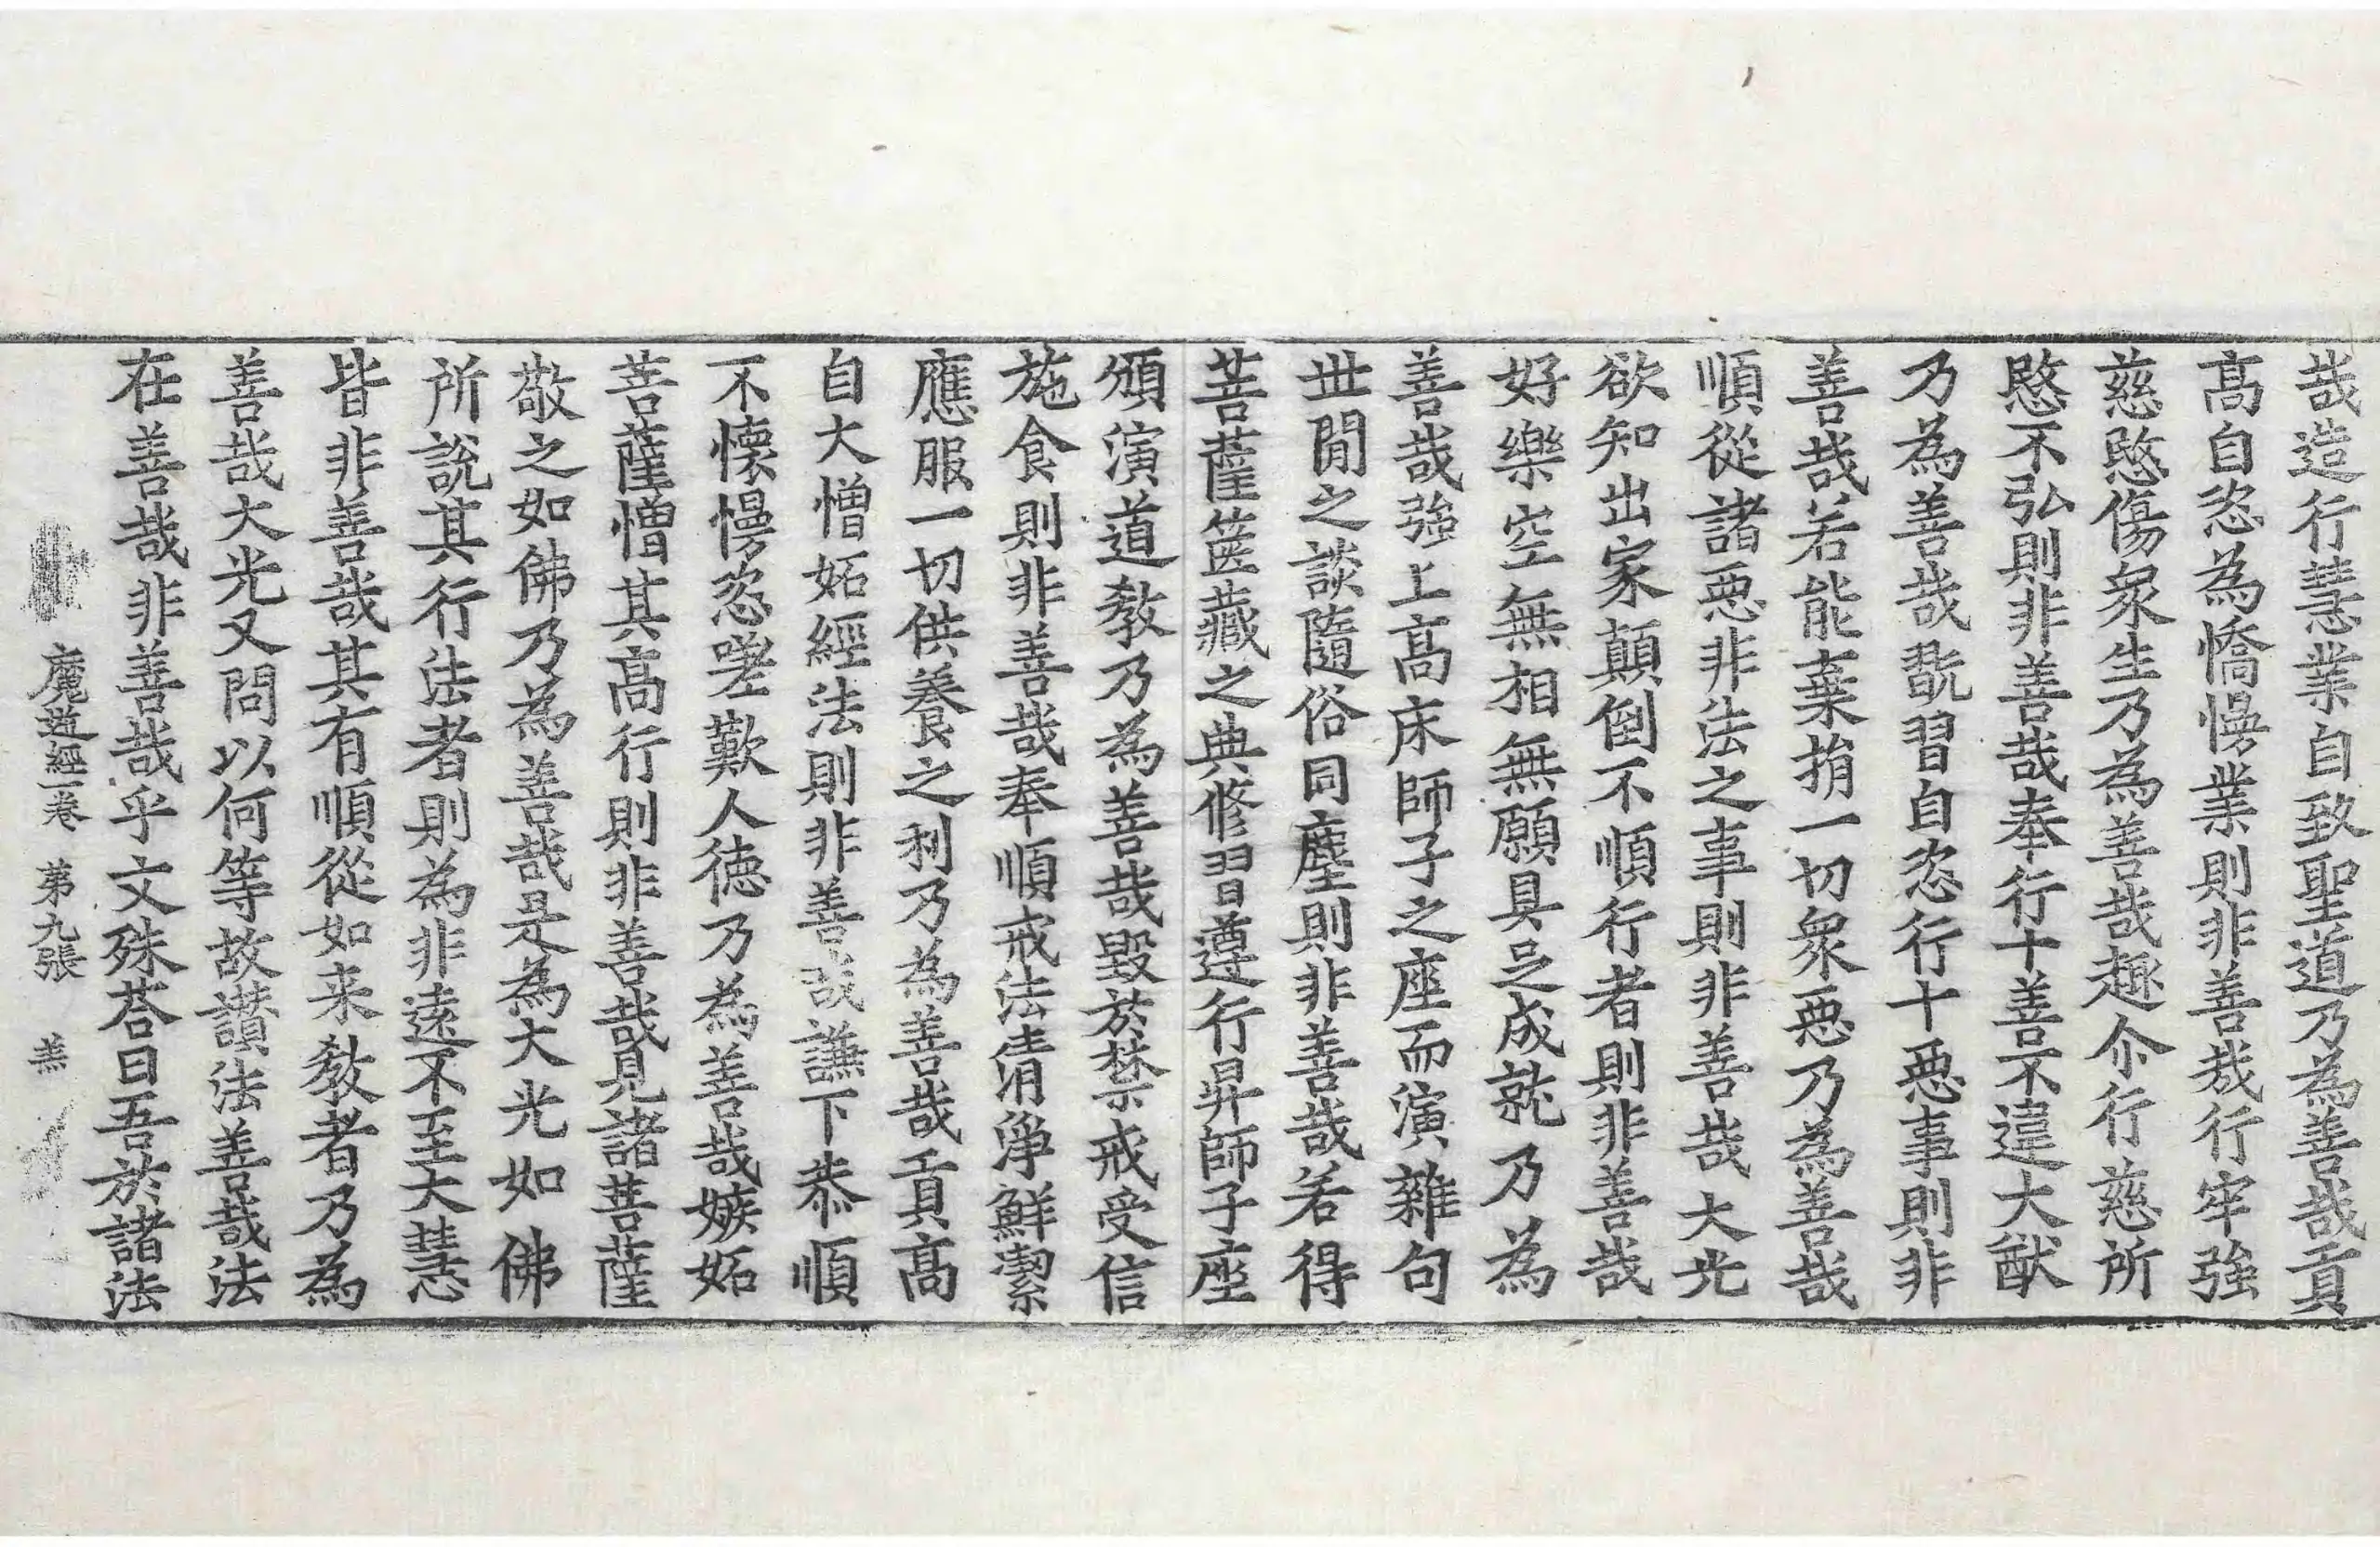 哉造行慧業自致聖道乃為善哉貢
髙自恣為憍慢業則非善哉行牢強
慈愍傷眾生乃為善哉趣尒行慈所
愍不弘則非善哉奉行十善不違大猷
乃為善哉翫習自恣行十惡事則非
善哉若能棄捐一切眾惡乃為善哉
順從諸惡非法之事則非善哉大光
欲知出家顛倒不順行者則非善哉
好樂空無相無願具足成就乃為
善哉強上髙床師子之座而演雜句
世閒之談隨俗同塵則非善哉若得
菩薩篋藏之典修習遵行昇師子座
頒演道教乃為善哉毀於禁戒受信
施食則非善哉奉順戒法清淨鮮潔
應服一切供養之利乃為善哉貢髙
自大憎妬經法則非善哉謙下恭順
不懷慢恣嗟歎人德乃為善哉嫉妬
菩薩憎其髙行則非善哉見諸菩薩
敬之如佛乃為善哉是為大光如佛
所說其行法者則為非遠不至大慧
皆非善哉其有順從如来教者乃為
善哉大光又問以何等故讃法善哉法
在善哉非善哉乎文殊荅曰吾於諸法
魔逆經一卷 第九張 羔